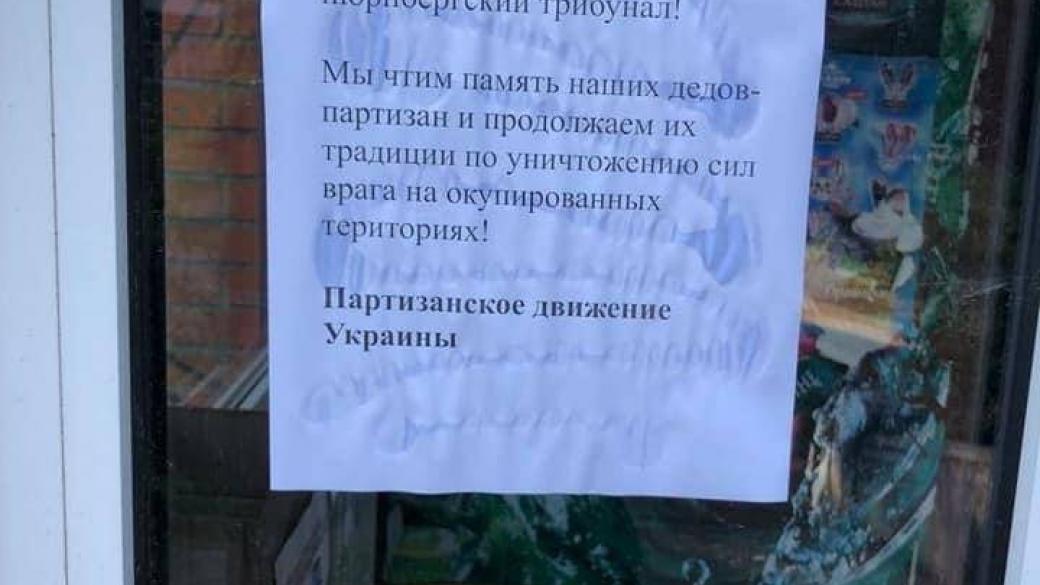 трибунал!
Мы чтим память наших дедов-
партизан и продолжаем их
традиции по уничтожению сил
врага на окупированных
териториях!
Партизанское движение
Украины